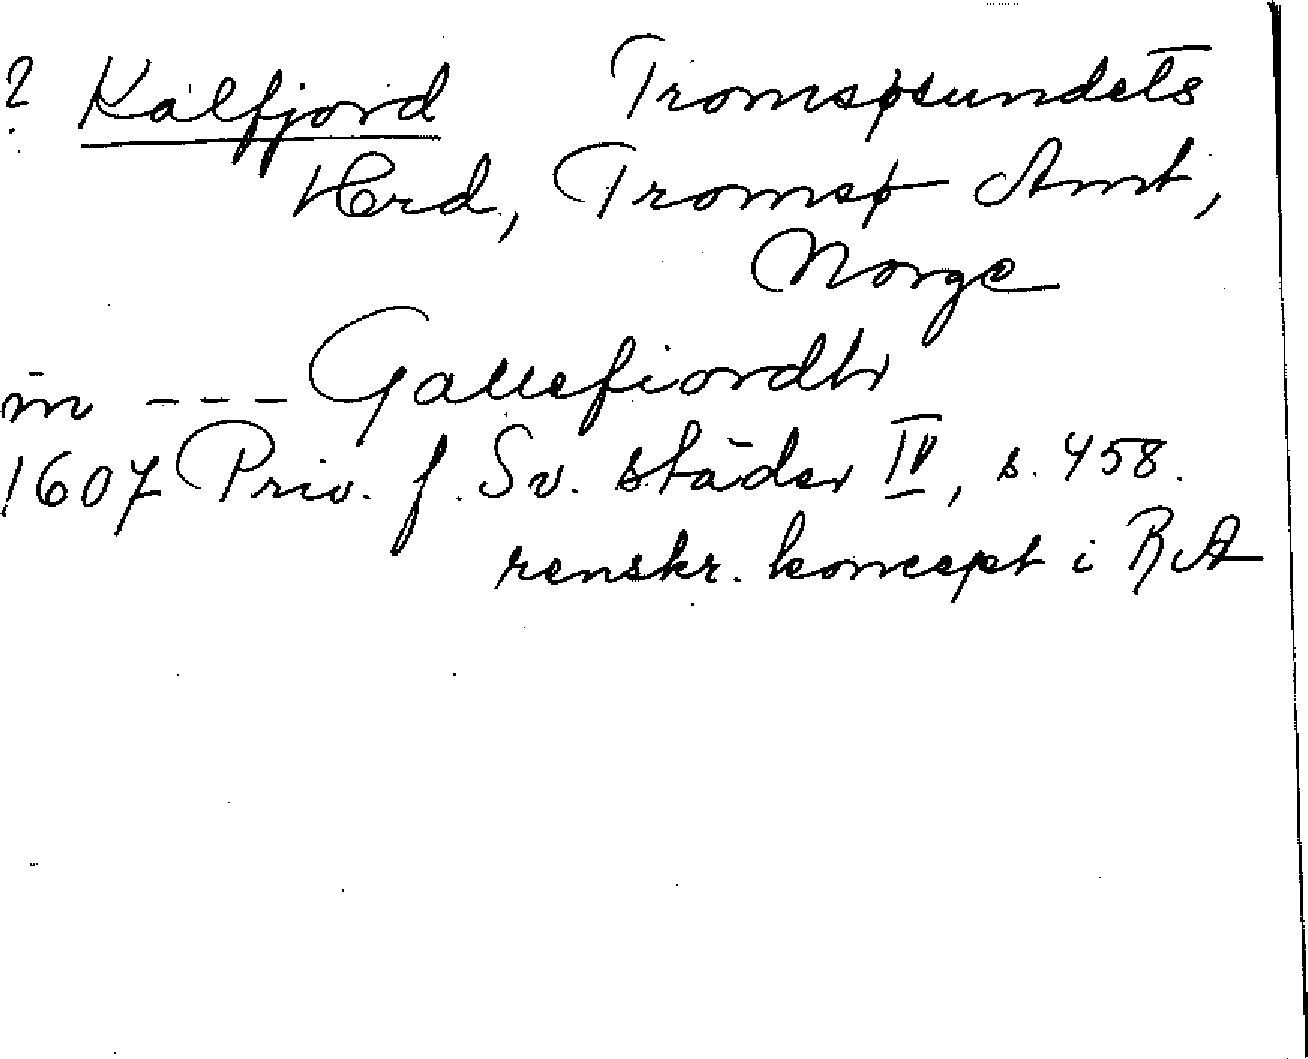 ? Kalfjord Tromsøsundets
Herd, Tromsø Amt,
Norge
in --- Gallefiordh
1607 Priv. f. Sv. städer IV, s. 458.
renskr. koncept i RA